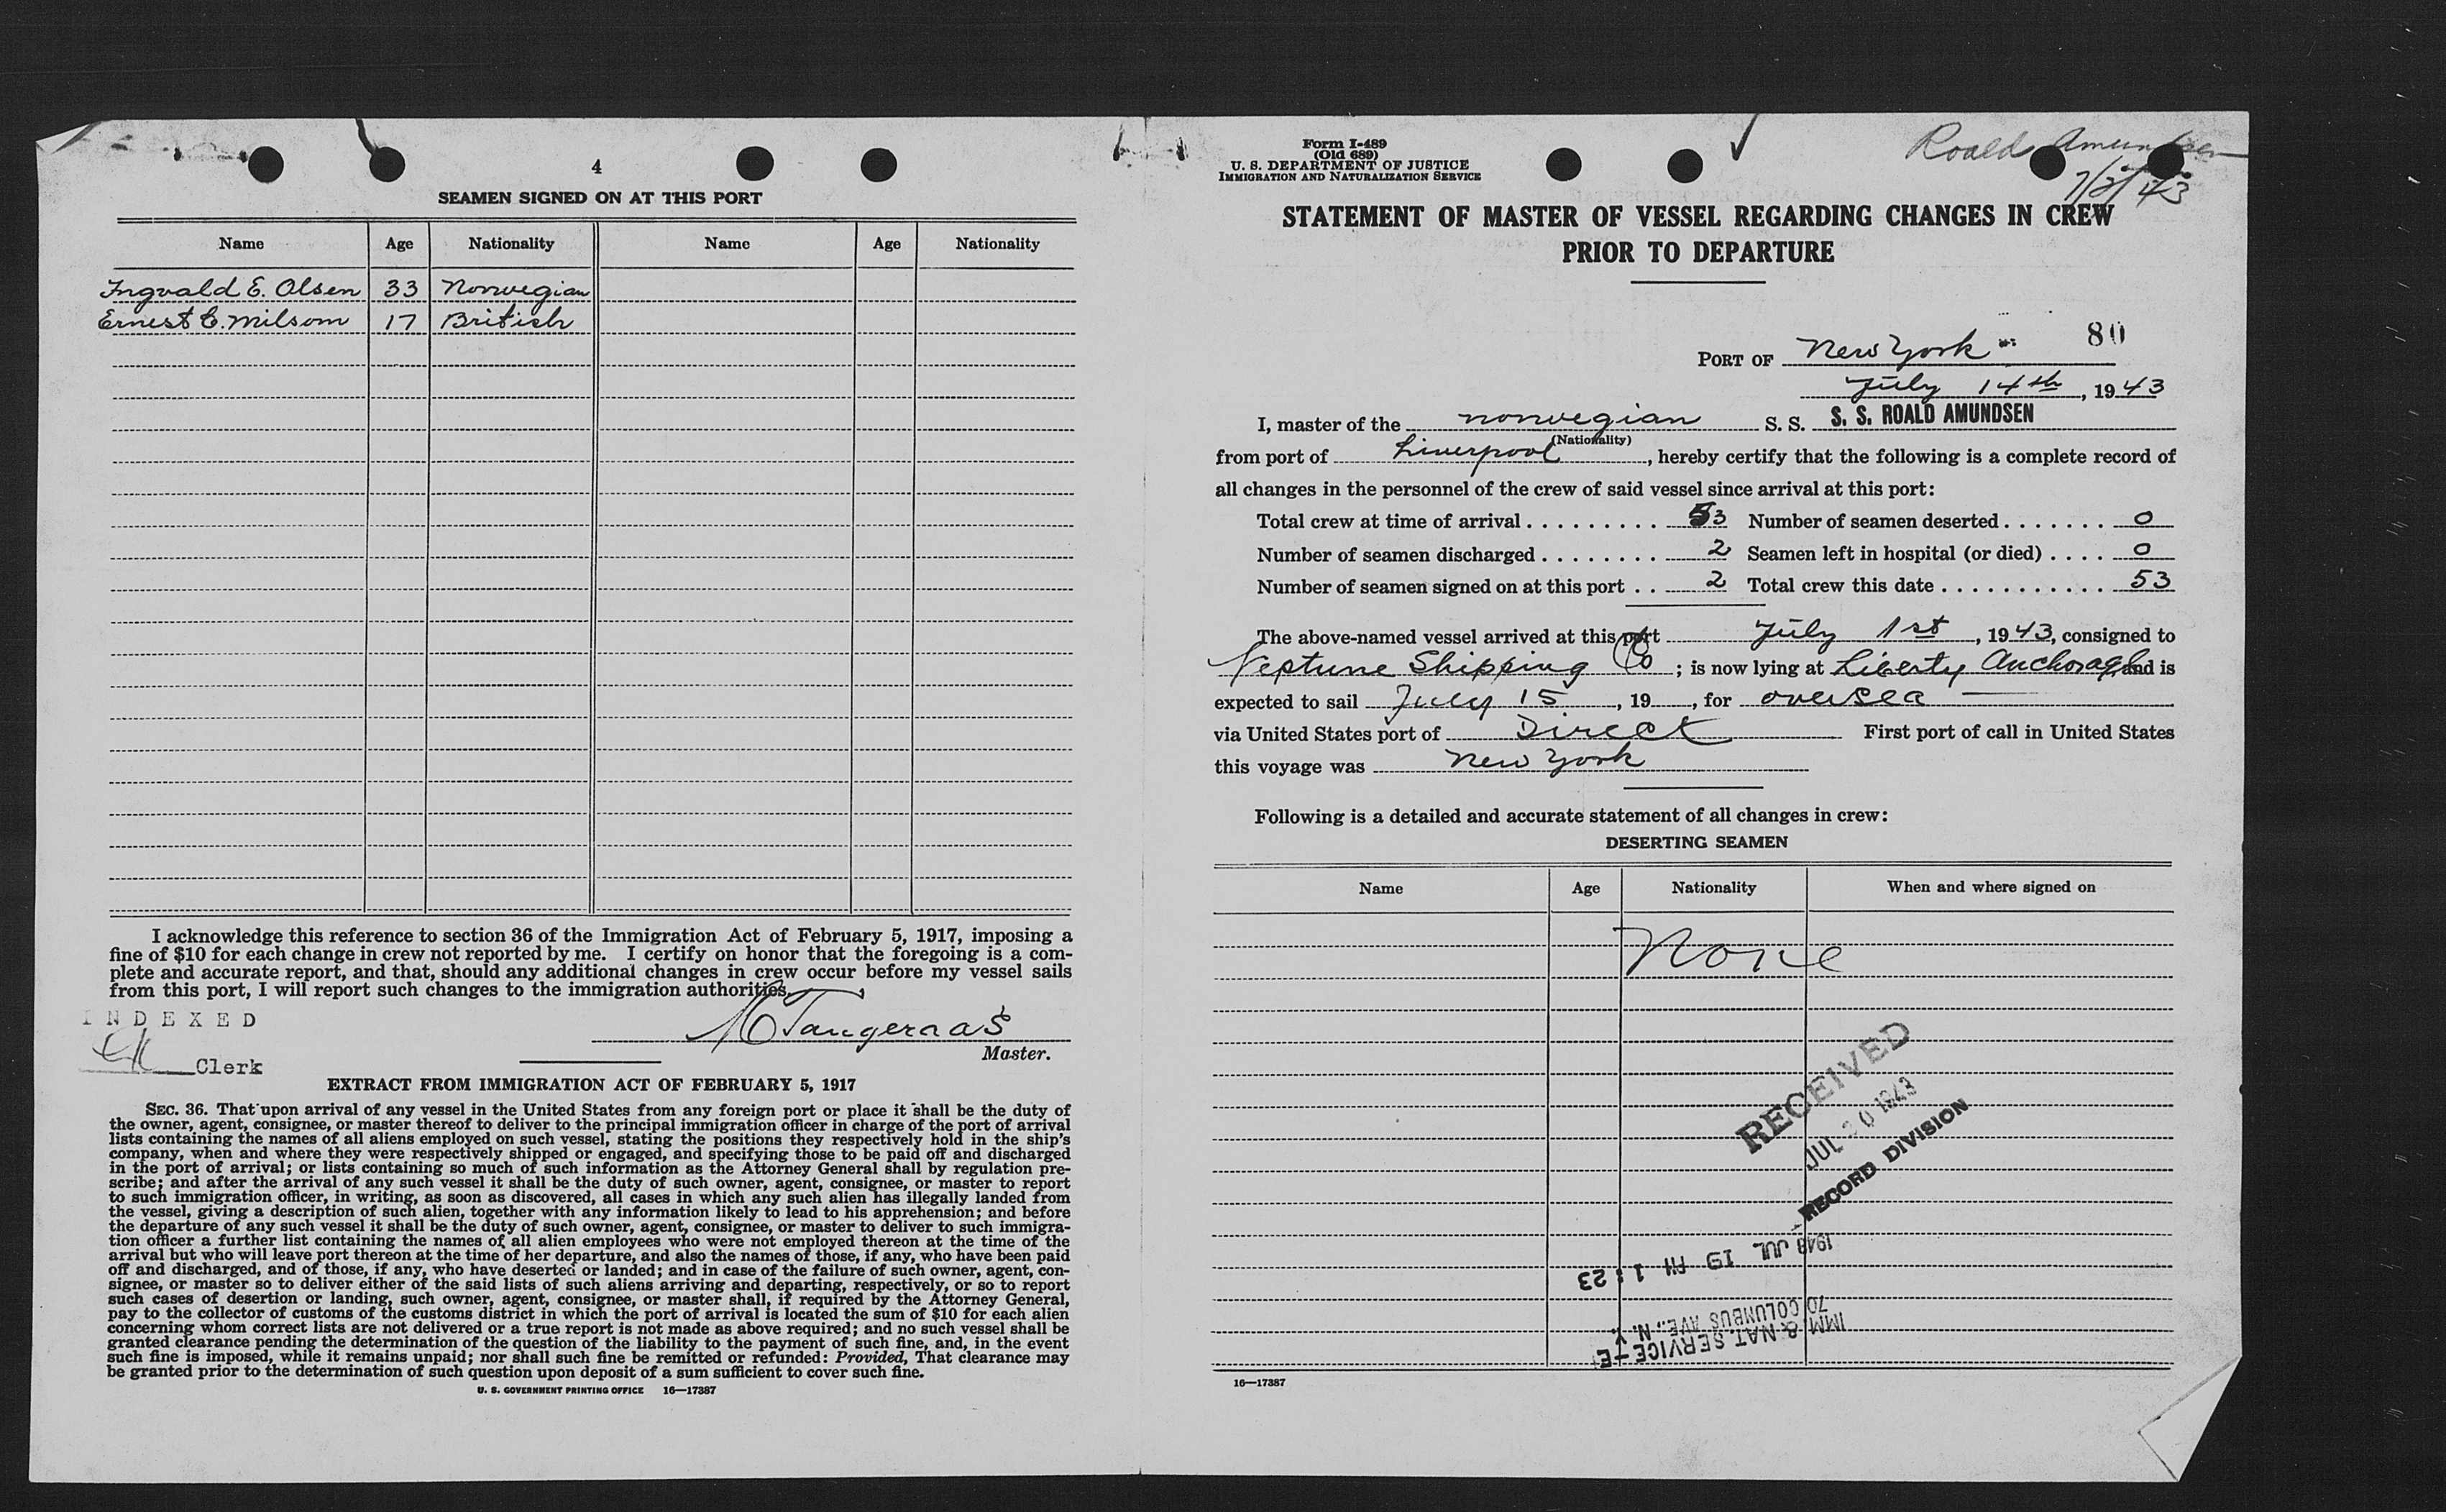 4
SEAMEN SIGNED ON AT THIS PORT
Name Age Nationality Name Age Nationality
Ingvald E. Olsen 33 Norwegian
Ernest C. Milsom 17 British
I acknowledge this reference to section 36 of the Immigration Act of February 5, 1917, imposing a
fine of $10 for each change in crew not reported by me. I certify on honor that the foregoing is a com-
plete and accurate report, and that, should any additional changes in crew occur before my vessel sails
from this port, I will report such changes to the immigration authorities.
INDEXED
Tangeraas
Master.
Clerk
EXTRACT FROM IMMIGRATION ACT OF FEBRUARY 5, 1917
SEC. 36. That upon arrival of any vessel in the United States from any foreign port or place it shall be the duty of
the owner, agent, consignee, or master thereof to deliver to the principal immigration officer in charge of the port of arrival
lists containing the names of all aliens employed on such vessel, stating the positions they respectively hold in the ship's
company, when and where they were respectively shipped or engaged, and specifying those to be paid off and discharged
in the port of arrival; or lists containing so much of such information as the Attorney General shall by regulation pre-
scribe; and after the arrival of any such vessel it shall be the duty of such owner, agent, consignee, or master to report
to such immigration officer, in writing, as soon as discovered, all cases in which any such alien has illegally landed from
the vessel, giving a description of such alien, together with any information likely to lead to his apprehension; and before
the departure of any such vessel it shall be the duty of such owner, agent, consignee, or master to deliver to such immigra-
tion officer a further list containing the names of all alien employees who were not employed thereon at the time of the
arrival but who will leave port thereon at the time of her departure, and also the names of those, if any, who have been paid
off and discharged, and of those, if any, who have deserted or landed; and in case of the failure of such owner, agent, con-
signee, or master so to deliver either of the said lists of such aliens arriving and departing, respectively, or so to report
such cases of desertion or landing, such owner, agent, consignee, or master shall, if required by the Attorney General,
pay to the collector of customs of the customs district in which the port of arrival is located the sum of $10 for each alien
concerning whom correct lists are not delivered or a true report is not made as above required; and no such vessel shall be
granted clearance pending the determination of the question of the liability to the payment of such fine, and, in the event
such fine is imposed, while it remains unpaid; nor shall such fine be remitted or refunded: Provided, That clearance may
be granted prior to the determination of such question upon deposit of a sum sufficient to cover such fine.
U. S. GOVERNMENT PRINTING OFFICE 16—17387
Form I-489
(Old 689)
U. S. DEPARTMENT OF JUSTICE
IMMIGRATION AND NATURALIZATION SERVICE
Roald Amundsen
STATEMENT OF MASTER OF VESSEL REGARDING CHANGES IN CREW
PRIOR TO DEPARTURE
80
PORT OF New York
July 14th, 1943
I, master of the norwegian S. S. S. S. ROALD AMUNDSEN
(Nationality)
from port of Liverpool, hereby certify that the following is a complete record of
all changes in the personnel of the crew of said vessel since arrival at this port:
Total crew at time of arrival . . . . . . . . . 53 Number of seamen deserted . . . . . . . 0
Number of seamen discharged . . . . . . . . 2 Seamen left in hospital (or died) . . . . 0
Number of seamen signed on at this port . . 2 Total crew this date . . . . . . . . . . . . 53
The above-named vessel arrived at this port July 1st, 1943, consigned to
Neptune Shipping Co; is now lying at Liberty Anchorage and is
expected to sail July 15, 19, for oversea
via United States port of Direct First port of call in United States
this voyage was New York
Following is a detailed and accurate statement of all changes in crew:
DESERTING SEAMEN
Name Age Nationality When and where signed on
None
RECEIVED
JUL 20 1943
RECORD DIVISION
1943 JUL 19 PM 1:23
70 COLUMBUS AVE., N. Y.
IMM. & NAT. SERVICE
16—17387